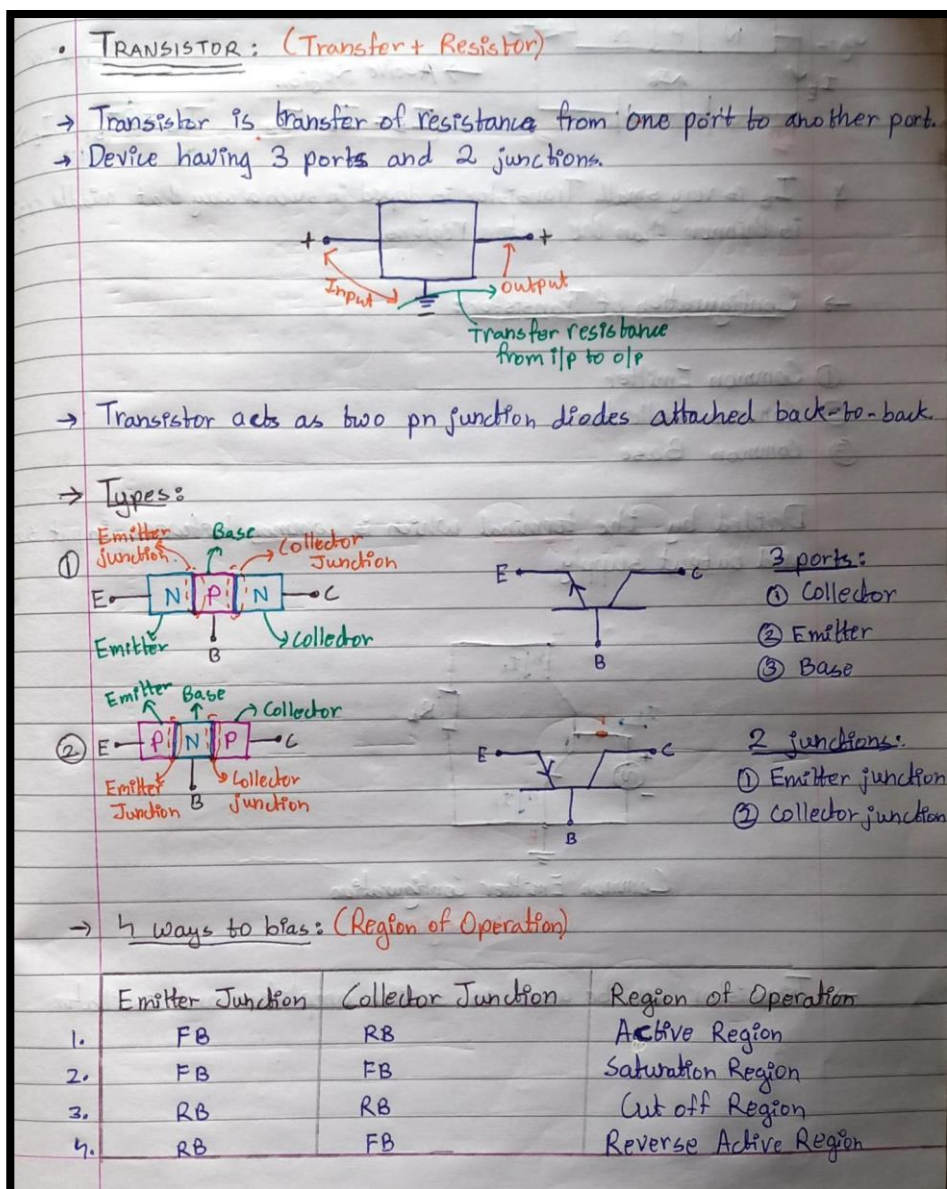 • TRANSISTOR: (Transfer + Resistor)
→ Transistor is transfer of resistance from one port to another port.
→ Device having 3 ports and 2 junctions.
+ +
Input Output
Transfer resistance
from i/p to o/p
→ Transistor acts as two pn junction diodes attached back-to-back.
→ Types:
① Emitter junction. Base Collector Junction
E N P N C
Emitter B Collector
E C
B
3 ports:
① Collector
② Emitter
③ Base
② Emitter Base Collector
E P N P C
Emitter Junction B Collector junction
E C
B
2 junctions:
① Emitter junction
② Collector junction
→ 4 ways to bias: (Region of Operation)
Emitter Junction Collector Junction Region of Operation
1. FB RB Active Region
2. FB FB Saturation Region
3. RB RB Cut off Region
4. RB FB Reverse Active Region